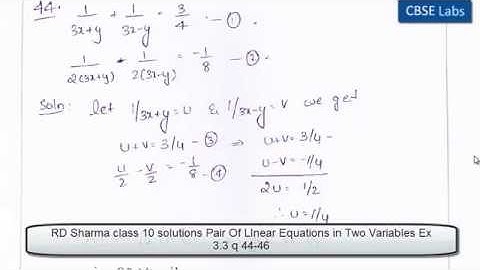 CBSE Labs
44. 1/(3x+y) + 1/(3x-y) = 3/4 - ①.
1/2(3x+y) - 1/2(3x-y) = -1/8 - ②.
Soln: let 1/3x+y = u & 1/3x-y = v we get
u+v = 3/4 - ③ ⇒ u+v = 3/4 -
u/2 - v/2 = -1/8 - ④ u-v = -1/4
2u = 1/2
∴ u = 1/4
RD Sharma class 10 solutions Pair Of LInear Equations in Two Variables Ex
3.3 q 44-46